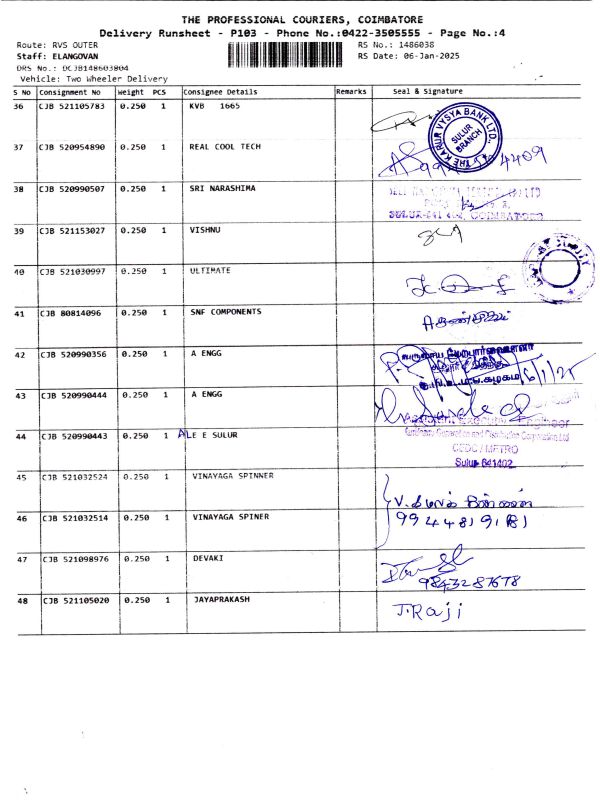 THE PROFESSIONAL COURIERS, COIMBATORE
Delivery Runsheet - P103 - Phone No.:0422-3505555 - Page No.:4
Route: RVS OUTER RS No.: 1486038
Staff: ELANGOVAN RS Date: 06-Jan-2025
DRS No.: DCJB148603804
Vehicle: Two Wheeler Delivery
S No Consignment No Weight PCS Consignee Details Remarks Seal & Signature
36 CJB 521105783 0.250 1 KVB 1665
THE KARUR VYSYA BANK LTD.,
SULUR
BRANCH
37 CJB 520954890 0.250 1 REAL COOL TECH
4409
38 CJB 520990507 0.250 1 SRI NARASHIMA
39 CJB 521153027 0.250 1 VISHNU
40 CJB 521030997 0.250 1 ULTIMATE
41 CJB 80814096 0.250 1 SNF COMPONENTS
42 CJB 520990356 0.250 1 A ENGG
6/1/25
43 CJB 520990444 0.250 1 A ENGG
44 CJB 520990443 0.250 1 ALE E SULUR
CEDC / METRO
Sulur 641402
45 CJB 521032524 0.250 1 VINAYAGA SPINNER
46 CJB 521032514 0.250 1 VINAYAGA SPINER
9944819181
47 CJB 521098976 0.250 1 DEVAKI
9843287678
48 CJB 521105020 0.250 1 JAYAPRAKASH
J.Raji